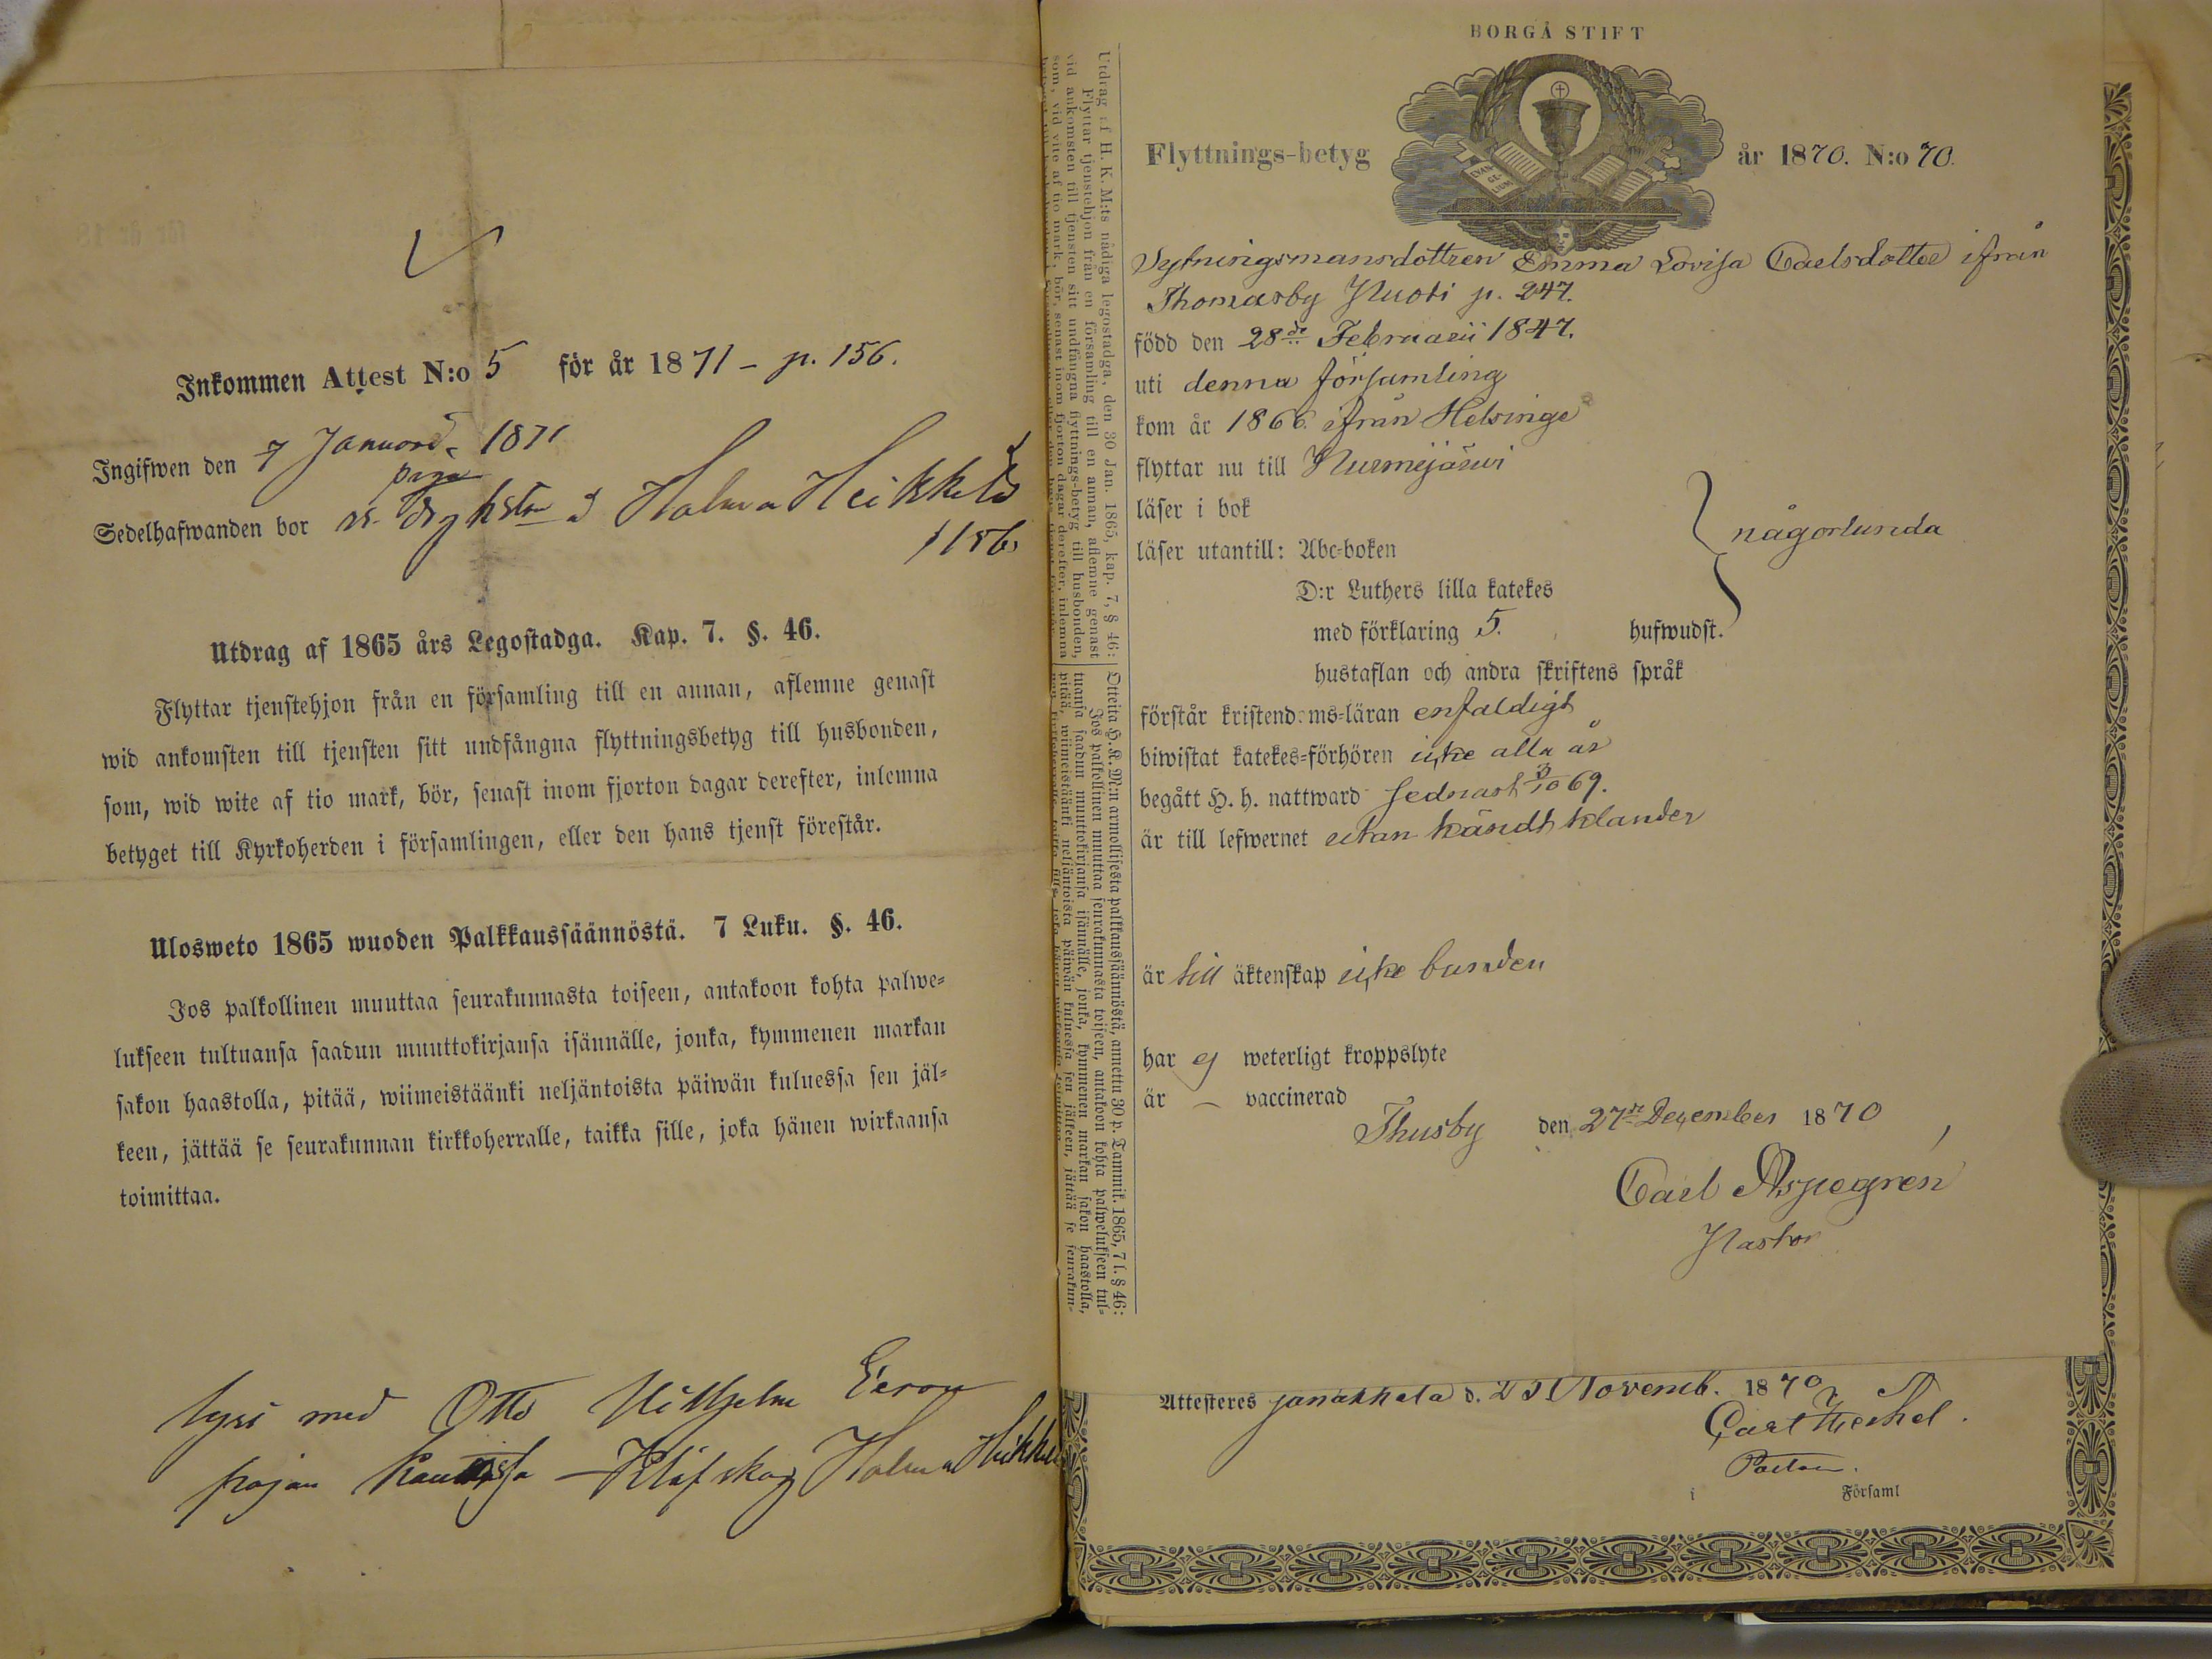 Inkommen Attest N:o 5 för år 1871 – p. 156.
Ingifwen den 7 Januari 1871
Sedelhafwanden bor Holma Heikkelä
p 156
Utdrag af 1865 års Legostadga. Kap. 7. §. 46.
Flyttar tjenstehjon från en församling till en annan, aflemne genast
wid ankomsten till tjensten sitt undfångna flyttningsbetyg till husbonden,
som, wid wite af tio mark, bör, senast inom fjorton dagar derefter, inlemna
betyget till Kyrkoherden i församlingen, eller den hans tjenst förestår.
Ulosweto 1865 wuoden Palkkaussäännöstä. 7 Luku. §. 46.
Jos palkollinen muuttaa seurakunnasta toiseen, antakoon kohta palwe=
lukseen tultuansa saadun muuttokirjansa isännälle, jonka, kymmenen markan
sakon haastolla, pitää, wiimeistäänki neljäntoista päiwän kuluessa sen jäl=
keen, jättää se seurakunnan kirkkoherralle, taikka sille, joka hänen wirkaansa
toimittaa.
lyses med Otto Wilhelm Eeron
pojan Holma Heikkelä
Utdrag af H. K. M:ts nådiga legostadga, den 30 Jan. 1865, kap. 7, § 46:
Flyttar tjenstehjon från en församling till en annan, aflemne genast
vid ankomsten till tjensten sitt undfångna flyttnings-betyg till husbonden,
som, vid vite af tio mark, bör, senast inom fjorton dagar derefter, inlemna
Otteita H. K. M:n armollisesta palkkaussäännöstä, annettu 30 p. Tammik. 1865, 7 l. § 46:
Jos palkollinen muuttaa seurakunnasta toiseen, antakoon kohta palwelukseen tul=
tuansa saadun muuttokirjansa isännälle, jonka, kymmenen markan sakon haastolla,
pitää, wiimeistäänki neljäntoista päiwän kuluessa sen jälkeen, jättää se seurakun=
BORGÅ STIFT
EVAN-
GE-
LIUM
Flyttnings-betyg år 1870. N:o 70.
Sytningsmansdottren Emma Lovisa Carlsdotter ifrån
Thomasby Nuoti p. 247.
född den 28de Februarii 1847.
uti denna församling
kom år 1866 ifrån Helsinge
flyttar nu till Nurmejäswi
läser i bok
läser utantill: Abc=boken
någorlunda
D:r Luthers lilla katekes
med förklaring 5. hufwudst.
hustaflan och andra skriftens språk
förstår kristendoms=läran enfaldigt
biwistat katekes=förhören icke alla år
begått H. h. nattward sednast 3/10 69.
är till lefwernet utan kändt klander
är till äktenskap icke bunden
har ej weterligt kroppslyte
är – vaccinerad
Thusby den 27de December 1870
Carl Aspegrén
Pastor
Attesteras Janakkala d. 25 Novemb. 1870
Carl
Pastor.
i Församl